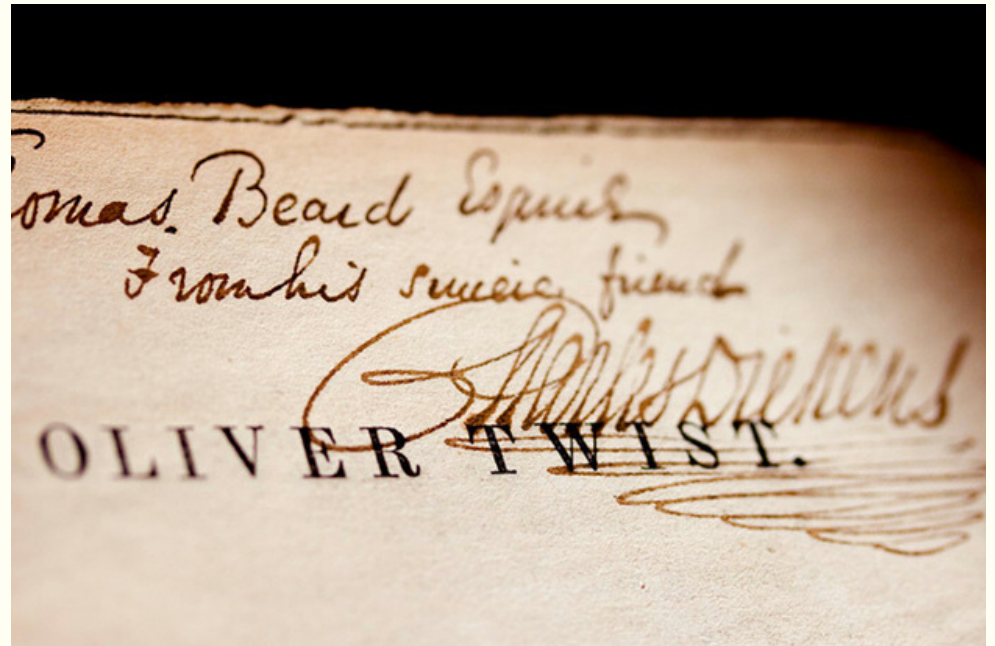 homas Beard Esquire
From his sincere friend
Charles Dickens
OLIVER TWIST.